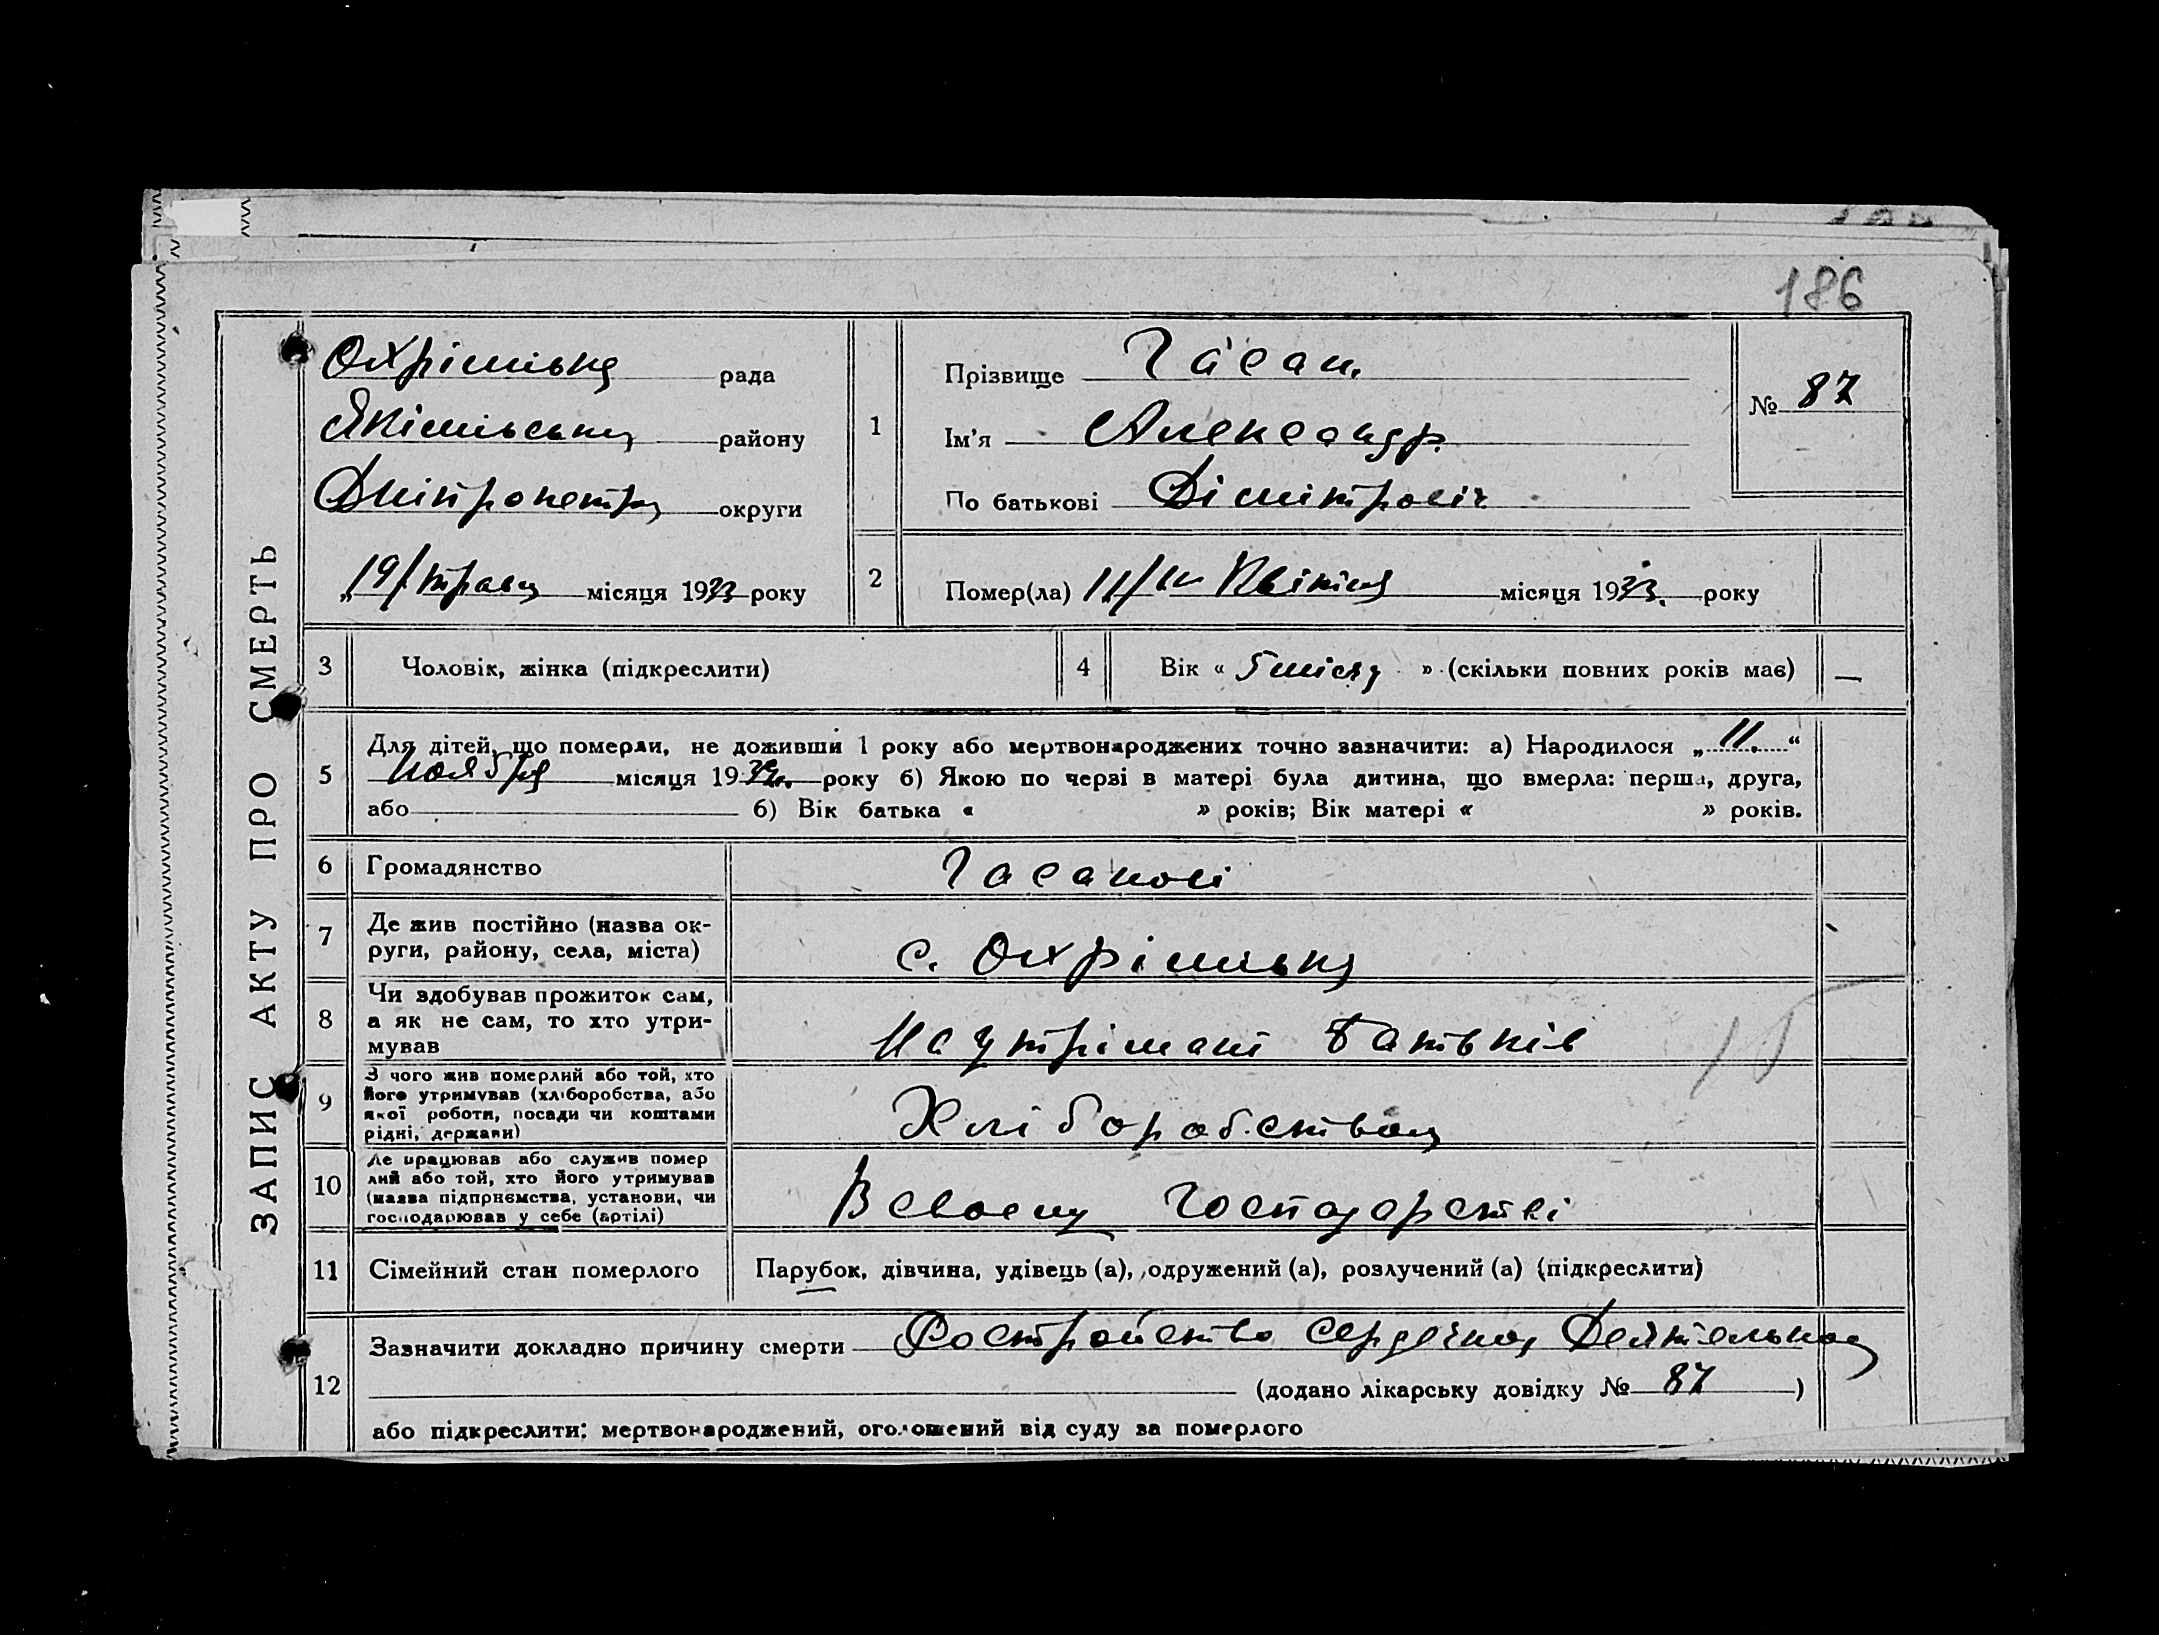 186
ЗАПИС АКТУ ПРО СМЕРТЬ
Охрімівська рада
району
Дніпропетр округи
„19/травня місяця 1933 року
1
Прізвище Гасан.
Ім'я Александр.
По батькові Дімітровіч
№ 87
2
Помер(ла) 11/ІV Квітня місяця 1933. року
3 Чоловік, жінка (підкреслити)
4 Вік « 5 місяц » (скільки повних років має) —
5
Для дітей, що померли, не доживши 1 року або мертвонароджених точно зазначити: а) Народилося „ 11. “
Ноября місяця 1932. року б) Якою по черзі в матері була дитина, що вмерла: перша, друга,
або б) Вік батька « » років; Вік матері « » років.
6 Громадянство
7 Де жив постійно (назва ок-
руги, району, села, міста) с.
8 Чи здобував прожиток сам,
а як не сам, то хто утри-
мував На утрімані батьків
9 З чого жив померлий або той, хто
його утримував (хліборобства, або
якої роботи, посади чи коштами
рідні, держави) Хліборобством
10 Де працював або служив помер
лий або той, хто його утримував
(назва підприємства, установи, чи
господарював у себе (артілі) В своєму господарстві
11 Сімейний стан померлого Парубок, дівчина, удівець (а), одружений (а), розлучений (а) (підкреслити)
12
Зазначити докладно причину смертиРостройство сердечной Деятельнос
(додано лікарську довідку № 87 )
або підкреслити: мертвонароджений, оголошений від суду за померлого